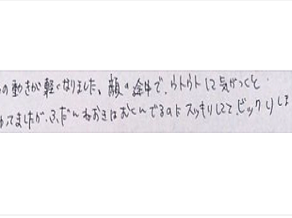 の動きが軽くなりました。顔の途中で、ウトウトして気がつくと
ってましたが、ふだんねおきはむくんでるのにスッキリしててビックリしま